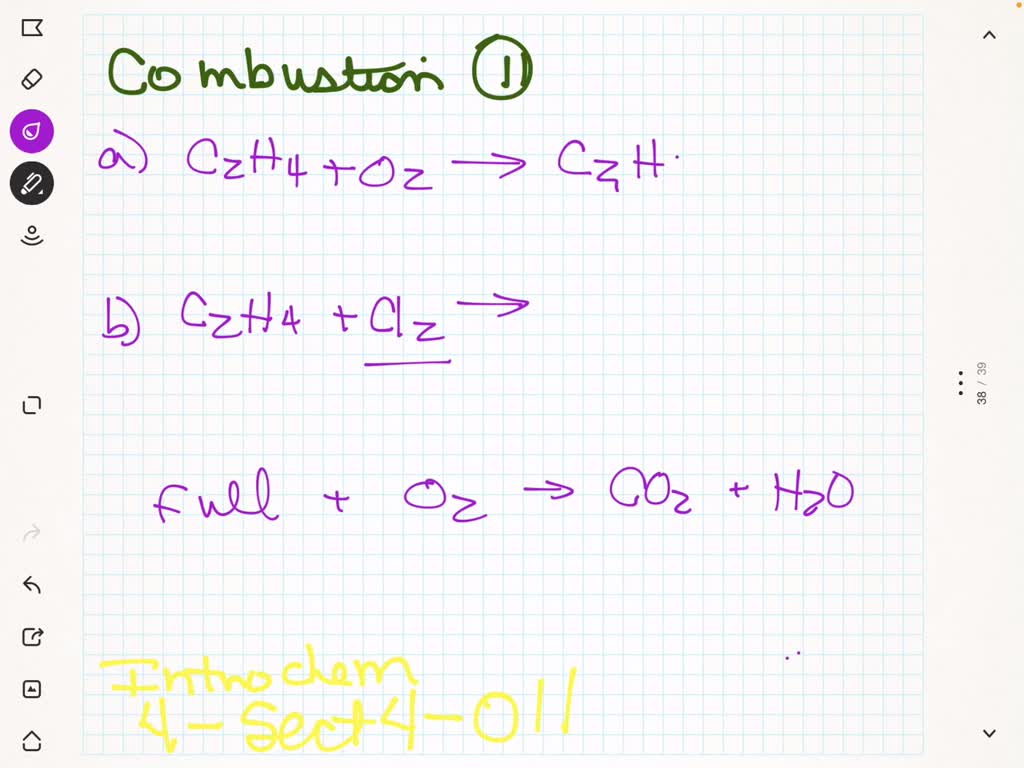 Combustion ①
a) C₂H₄ + O₂ → C₂H
b) C₂H₄ + Cl₂ →
full + O₂ → CO₂ + H₂O
Intro chem
4 - Sect 4 - 011
38 / 39